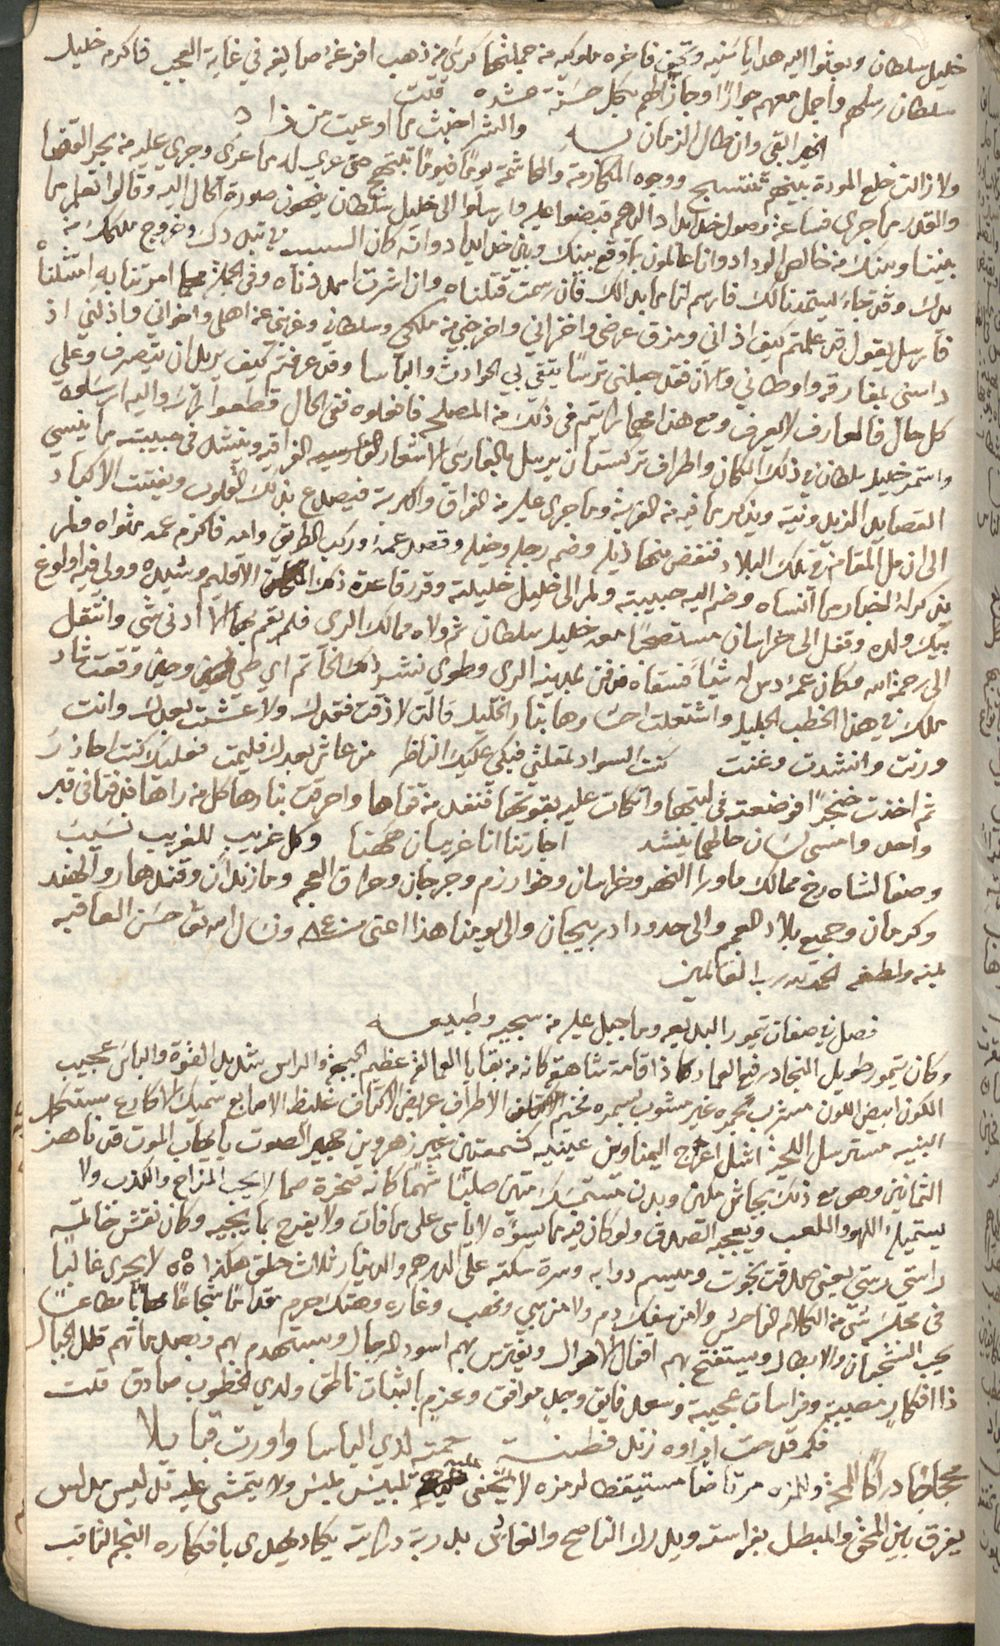 خليل سلطان وبعثوا اليه هدايا سنيه وتحف فاخره ملوكيه من جملتها كرسى من ذهب افرغه صايغه في غاية العجب فاكرم خليل
سلطان رسلهم واجمل معهم جوارًا وجازاهم بكل حسنة عشره قلت
الخير ابقى وان طال الزمان به والشر اخبث ما اوعيت من زاد
ولا زالت خلع المودة بينهم تنتسج ووجوه المكارمة والحاشمة يومًا فيومًا تبتهج حتى جرى له ما جرى وجرى عليه من بحر القضا
والقدر ما جرى فساعة وصول خدايداد اليهم قبضوا عليه وارسلوا الى خليل سلطان ينهون صورة الحال اليه وقالوا تعلم ما
بيننا وبينك من خالص الوداد وانا عالمون بما وقع بينك وبين خدايداد وانه كان السبب في تبدد ملكك وخروج ملكك من
يدك وقد جاء ليستمدنا لك فارسم لنا ما بدا لك فان رسمت قتلناه وان اشرت امددناه وفى الجملة مهما امرتنا به امتثلناه
فارسل يقول قد علمتم كيف اذانى ومزق عرضي واخزاني واخرجني من ملكي وسلطاني وغربني عن اهلي واخواني واذلني اذ
داسنى بمفارقة واوطاني والان فقد جعلنى ترسًا يتقى بي الحوادث والباسا وقد عرفتم كيف يريد ان يتصرف وعلى
كل حال فالمعارف لا يعرف ومع هذا مهما رايتم فى ذلك من المصلحة فافعلوه ففى الحال قطعوا راسه واليه ارسلوه
واستمر خليل سلطان في ذلك المكان واطراف تركستان يرسل بالفارسى الاشعار الفراقيه وينشد فى حبيبته ما ينسي
القصايد الزيدونية ويذكر ما فيه من الغربة وما جرى عليه من الفراق والكربة فيصدع بذلك القلوب ويفتت الاكباد
الى ان مل المقام في تلك البلاد فنفض منها ذيله وضم رجله وخيله وقصد عمه وركب الطريق وامه فاكرم عمه مثواه ولم
يذكر له شيئا مما انساه وضم اليه حبيبته ولم الى خليل خليلته وقرر قاعدة ذلك الاقليم وشيده وولى فيه اولوغ
بيك ولده وقفل الى خراسان مستصحبًا معه خليل سلطان ثم ولاه ممالك الري فلم يقم بها الا ادنى شى وانتقل
الى رحمة الله وكان عمه دس له شيئًا فسقاه فدفن بمدينة الري وطوى نشر ذكر الخا تم اي طي وحين وقعت شاد
ملك في هذا الخطب الجليل واشتعلت احشاوها بنار الخليل قالت لا ذقت فقدك ولا عشت بعدك وانت
ورنت وانشدت وغنت كنت السواد لمقلتي فبكى عليك الناظر من شاء بعدك فليمت فعليك كنت احاذر
ثم اخذت خنجرًا فوضعته فى لبتها واتكات عليه بقوتها فنفذ من قفاها واحرقت بنارها كل من راها فدفنا فى قبر
واحد وامسى لسان حالهما ينشد اجارتنا انا غريبان ههنا وكل غريب للغريب نسيب
وصفا لشاه رخ ممالك ماورا النهر وخراسان وخوارزم وجرجان وعراق العجم ومازندران وقندهار والهند
وكرمان وجميع بلاد العجم والى حدود اذربيجان والى يومنا هذا اعنى سنة ٨٤٠ ونسال الله تعالى حسن العاقبه
بمنه ولطفه الحمد لله رب العالمين
فصل في صفات تيمور البديعه وما جبل عليه من سجيه وطبيعه
وكان تيمور طويل النجاد رفيع العماد ذا قامة شاهقة كانه من بقايا العمالقه عظيم الجبهة والراس شديد القوة والباس عجيب
الكون ابيض اللون مشرب بحمره غير مشوب بسمره فخيم الاطراف عريض الاكتاف غليظ الاصابع سميك الاكارع مستكمل
البنيه مسترسل اللحيه اشل اعرج اليمناوين عينيه كشمعتين غير زهروين جهير الصوت لا يهاب الموت قد ناهز
الثمانين وهو مع ذلك بجاش مكين وبدن مستمسك متين صلبًا شهمًا كانه صخرة صما لا يحب المزاح والكذب ولا
يستميله اللهو واللعب ويعجبه الصدق ولو كان فيه ما يسوءه لا ياسى على ما فات ولا يفرح بما يجيه وكان نقش خاتمه
راستى رستى يعنى صدقت نجوت وميسم دوابه وسرة سكته على الدرهم والدينار ثلاث حلق هكذا ه٥ه لا يجرى غالبًا
فى مجلسه شى من الكلام الفاحش ولا من سفك دم ولا من سبي ونهب وغاره وهتك حرم مقدامًا شجاعًا مهابًا مطاعًا
يحب الشجعان والابطال ويستفتح بهم اقفال الاهوال ويفترس بهم اسود الرجال ويستهدم بهم وبصدماتهم قلل الجبال
ذا افكار مصيبة وفراسات عجيبة وسعد فايق وجد موافق وعزم بالثبات ناطق ولدى الخطوب صادق قلت
فكم قدحت اراوه زند فطنة حمت لدي الباسا واورت قبايلا
محجاجًا دراكًا للمحه واللمزه مرتاضًا مستيقظا لرمزه لا يخفى عليه تلبيس ملبس ولا يتمشى عليه تدليس مدلس
يفرق بين المحق والمبطل بفراسته ويدرك الناصح والغاش بدربة درايته يكاد يهدى بافكاره النجم الثاقب